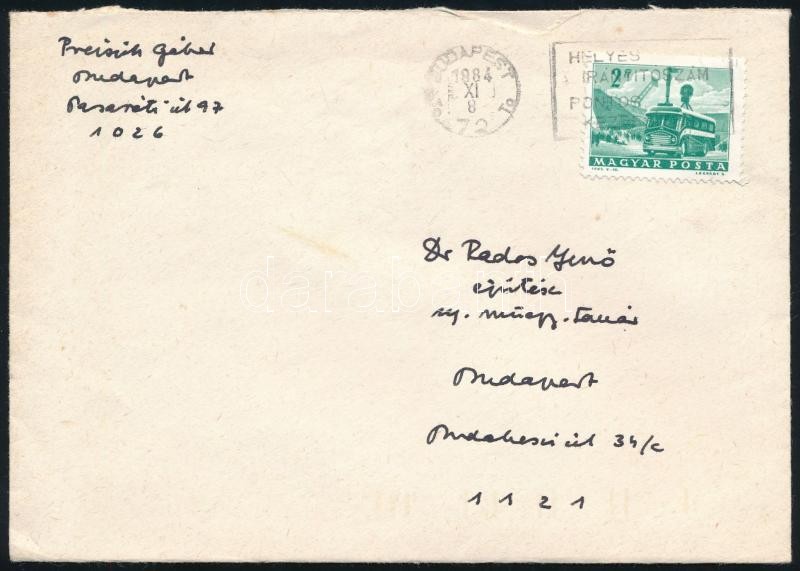 Preisich Gábor
Budapest
Pasaréti út 97
1026
BUDAPEST
1984
XI
8
72
HELYES
IRÁNYÍTÓSZÁM
PONTOS
2
MAGYAR POSTA
Dr Rados Jenő
építész
ny. műegy. tanár
Budapest
Budakeszi út 34/c
1121
darabanth